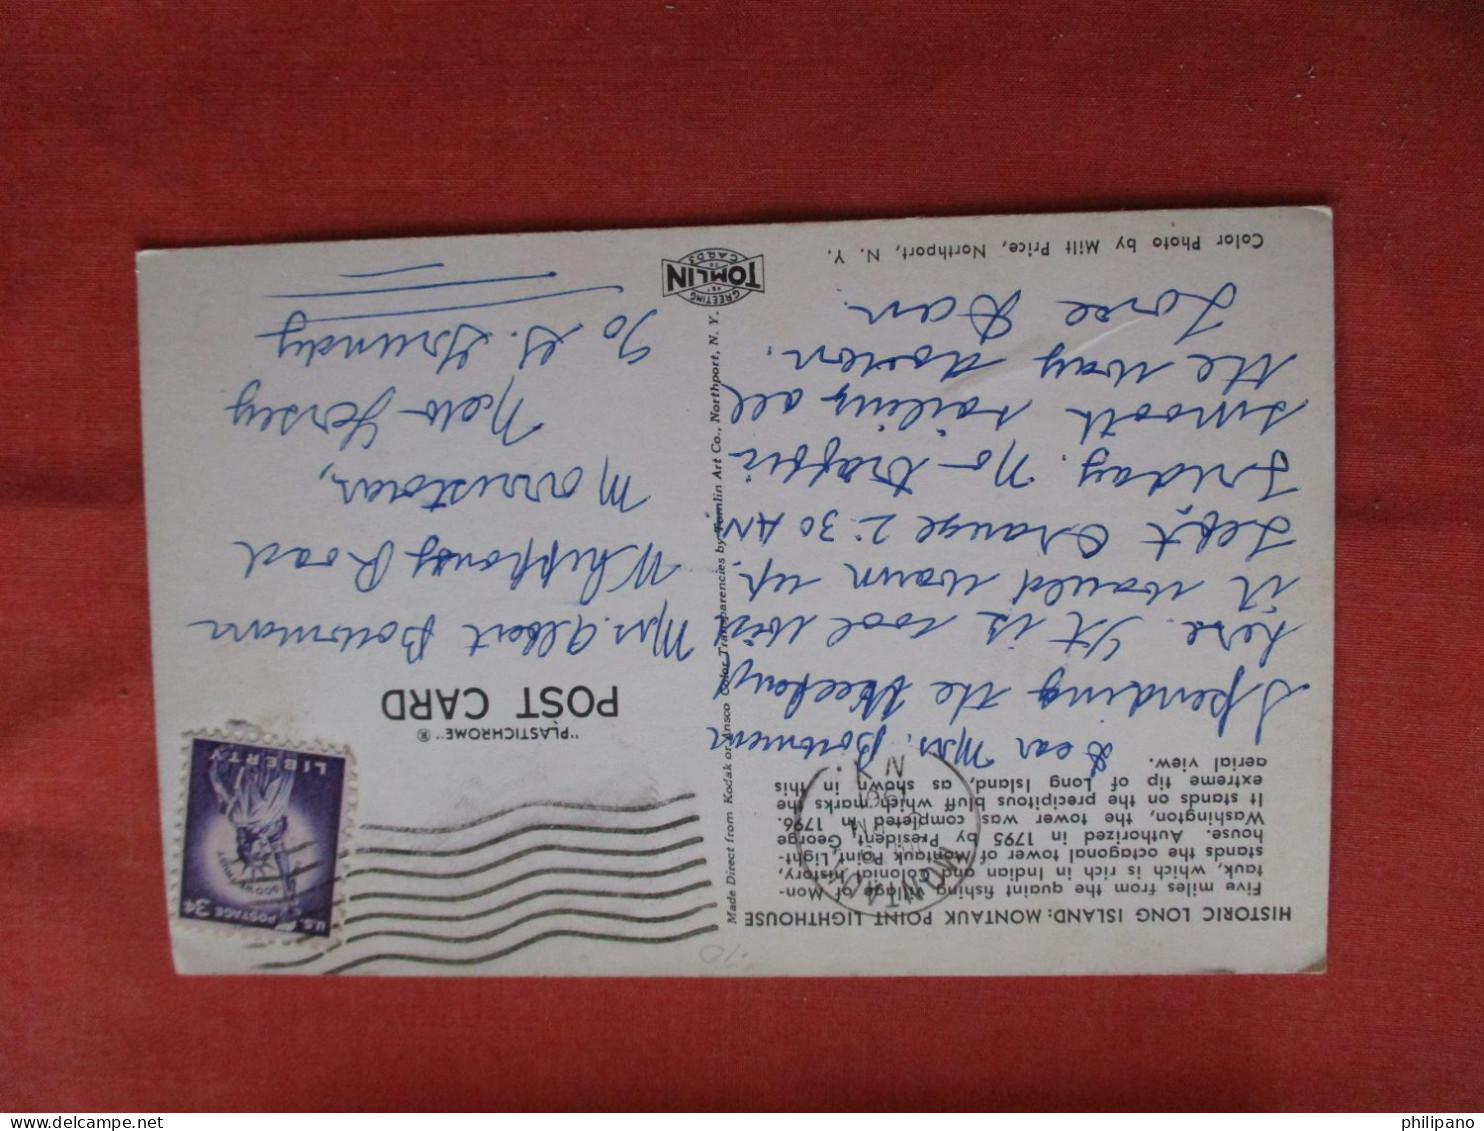 HISTORIC LONG ISLAND: MONTAUK POINT LIGHTHOUSE
Five miles from the quaint fishing village of Mon-
tauk, which is rich in Indian and Colonial history,
stands the octagonal tower of Montauk Point Light-
house. Authorized in 1795 by President, George
Washington, the tower was completed in 1796.
It stands on the precipitous bluff which marks the
extreme tip of Long Island, as shown in this
aerial view.
MONTAUK
N.Y.
Dear Mrs. Bowman
Spending the Weekend
here. It is cool wish
it would warm up.
Left Orange 2:30 AM
Friday. No traffic
smooth sailing all
the way down.
Love Dan
Color Photo by Milt Price, Northport, N. Y.
Made Direct from Kodak or Ansco Color Transparencies by Tomlin Art Co., Northport, N. Y.
GREETING
TOMLIN
CARDS
U.S. POSTAGE 3¢
IN GOD WE TRUST
LIBERTY
"PLASTICHROME" ®
POST CARD
Mrs. Albert Bowman
Whippany Road
Morristown,
New Jersey
℅ G. Grundy
philipano